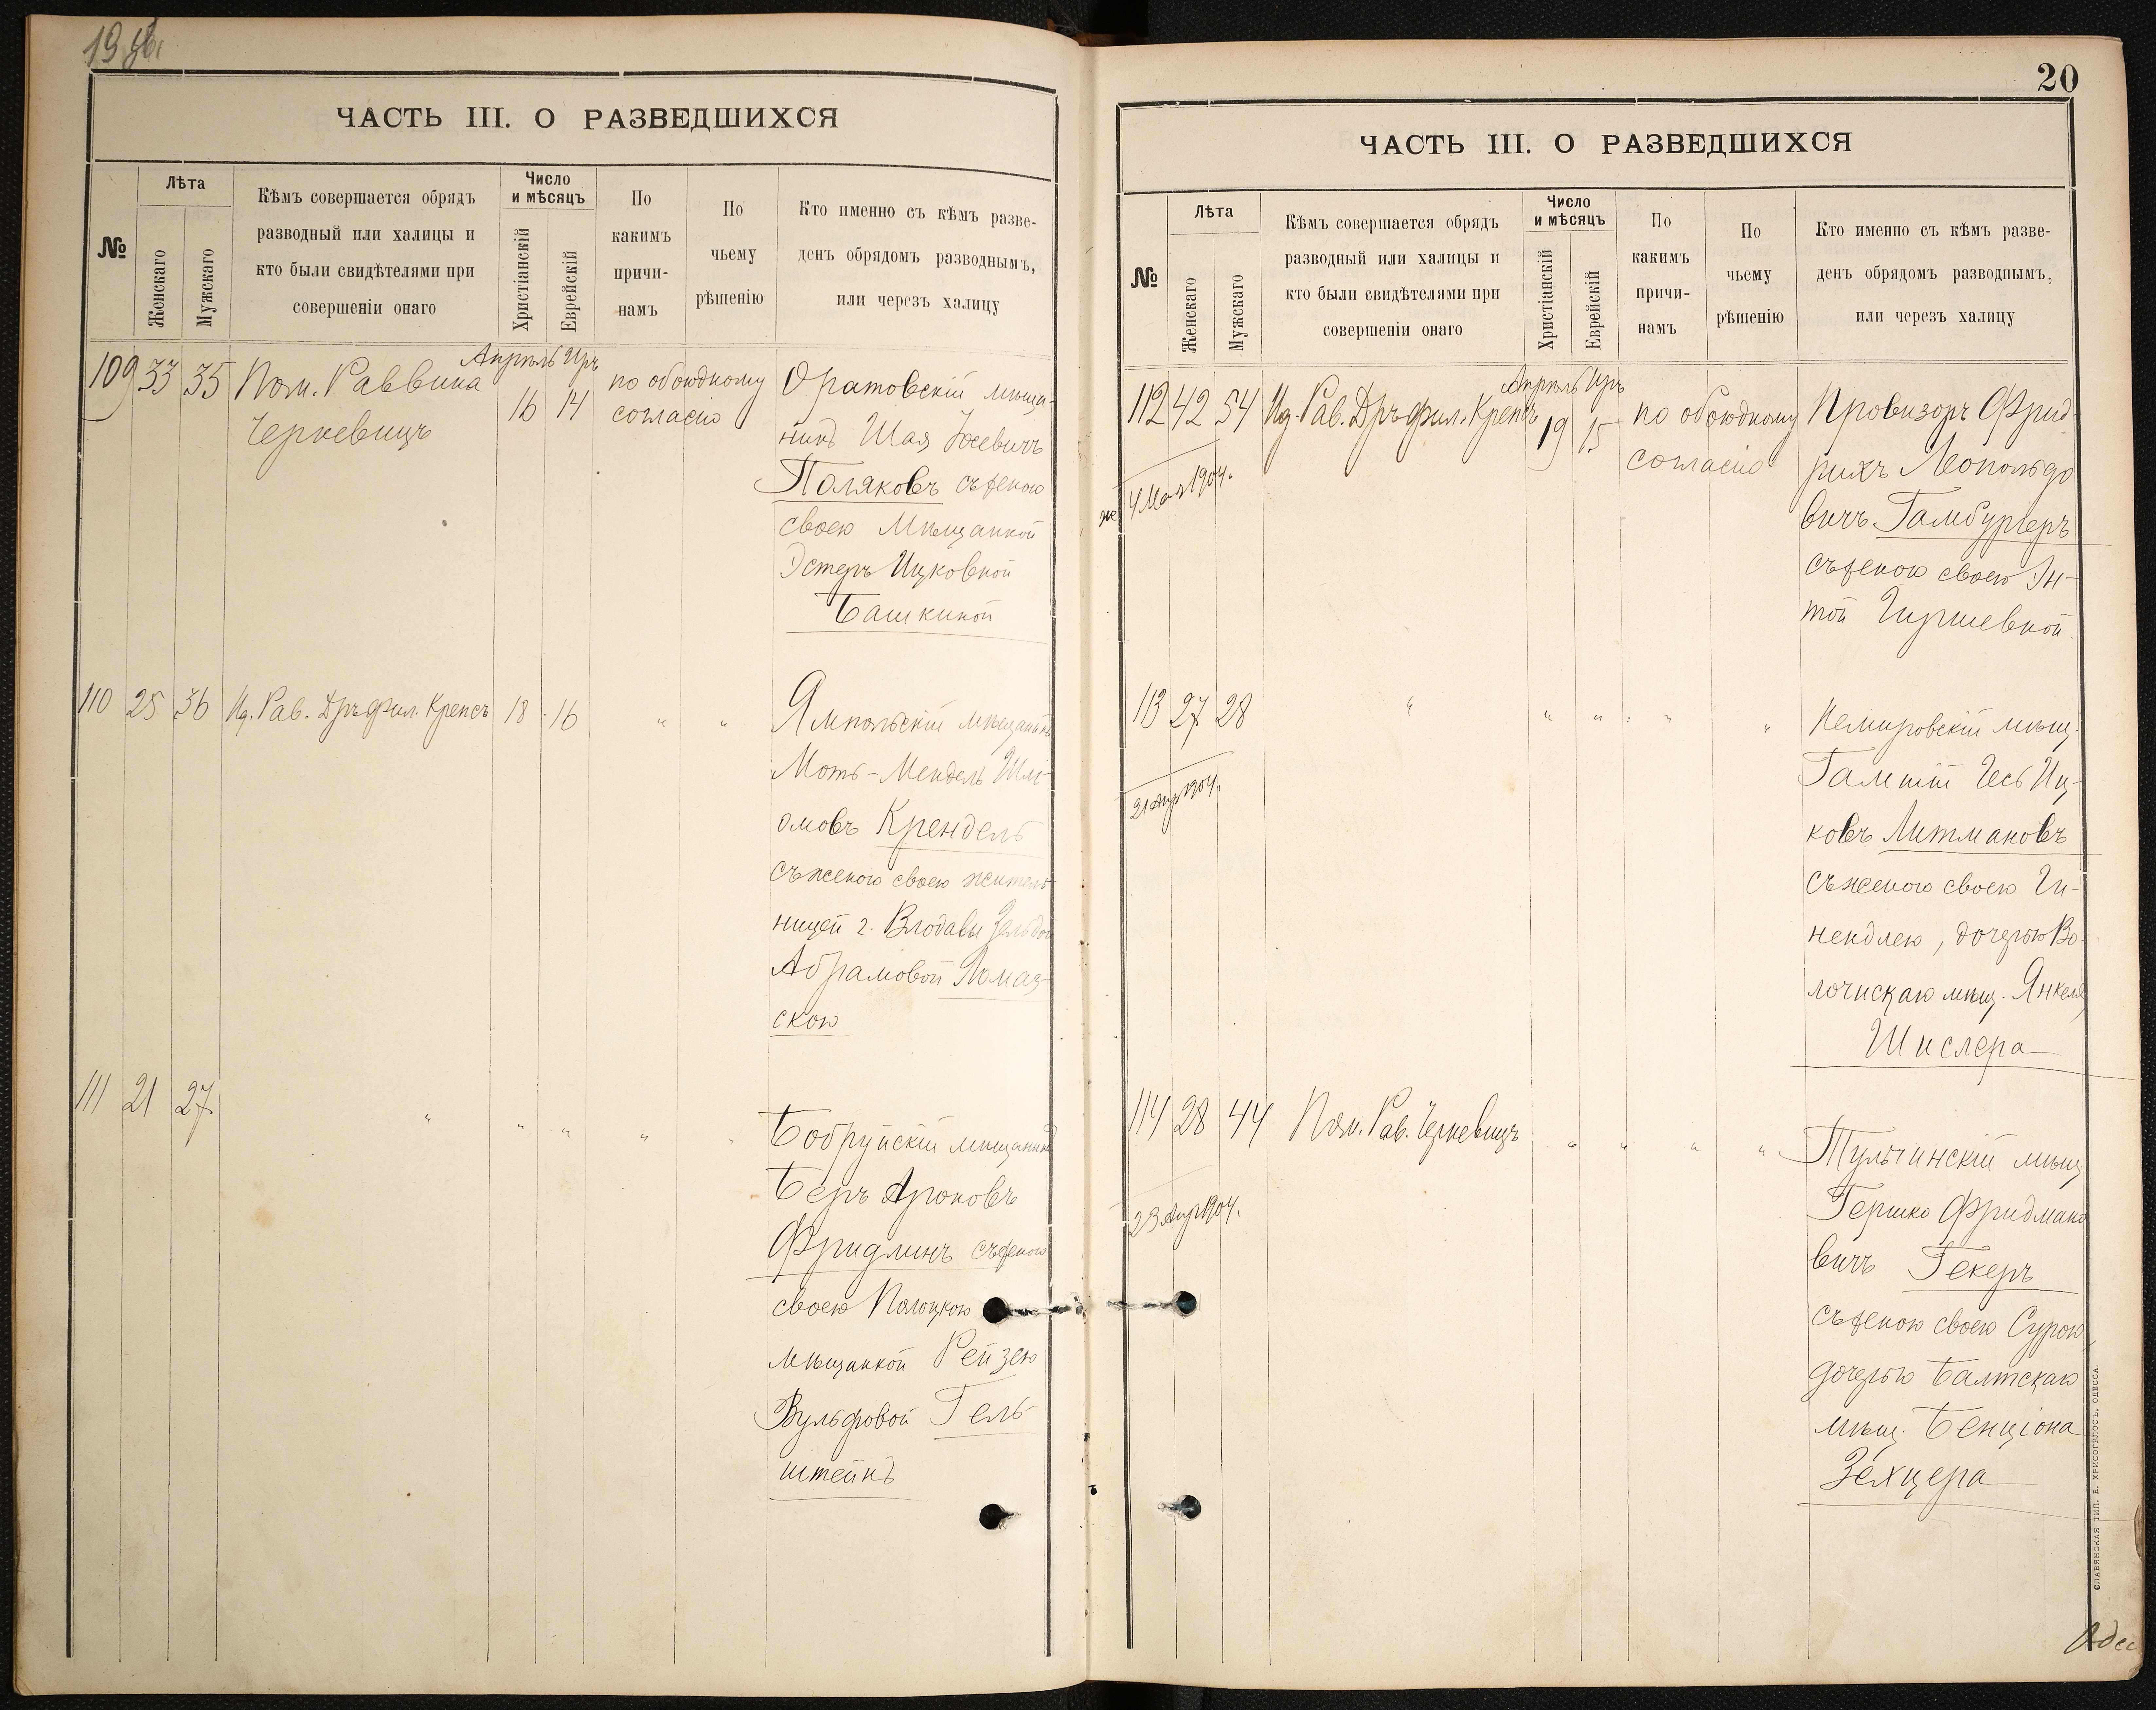 ЧАСТЬ III. О РАЗВЕДШИХСЯ
№
Лѣта
Женскаго
Мужскаго
Кѣмъ совершается обрядъ
разводный или халицы и
кто были свидѣтелями при
совершеніи онаго
Число
и мѣсяцъ
Христіанскій
Еврейскій
По
какимъ
причи-
намъ
По
чьему
рѣшенію
Кто именно съ кѣмъ разве-
денъ обрядомъ разводнымъ,
или черезъ халицу
109 33 35 Пом. Раввина
Черкевицъ
Апрѣль Иръ
16 14
по обоюдному
согласію
Оратовскій мѣща-
нинъ Шая
Поляковъ съ женою
своею Мѣщанкой
Эстеръ Ицковной
Башкиной
110 25 36 Ид. Рав. Дръ фил. Крепсъ 18 16 " "
Ямпольскій мѣщанинъ
Моть-Мендель Шлі-
омовъ Крендель
съ женою своею житель
ницей г. Влодавы Зельдой
Абрамовой Ломаз-
скою
111 21 27 " " " " "
Бобруйскій мѣщанинъ
Беръ Ароновъ
Фридлинъ съ женою
своею Полоцкою
мѣщанкой Рейзею
Вульфовой Гель-
штейнъ
20
ЧАСТЬ III. О РАЗВЕДШИХСЯ
№
Лѣта
Женскаго
Мужскаго
Кѣмъ совершается обрядъ
разводный или халицы и
кто были свидѣтелями при
совершеніи онаго
Число
и мѣсяцъ
Христіанскій
Еврейскій
По
какимъ
причи-
намъ
По
чьему
рѣшенію
Кто именно съ кѣмъ разве-
денъ обрядомъ разводнымъ,
или черезъ халицу
112 42 54 Ид. Рав. Дръ фил. Крепсъ
Апрѣль Иръ
19 15
по обоюдному
согласію
4 Мая 1904.
Провизоръ Фрид-
рихъ Леопольдо
вичъ Гамбургеръ
съ женою своею Эн-
той Гиршевной
113 27 28 " " " " "
21 Апр 1904.
Немировскій мѣщ.
Гамшій Гесь Иц-
ковъ Литмановъ
съ женою своею Ги-
нендлею, дочерью Во-
лочискаго мѣщ. Янкеля
Шислера
114 28 44 Пом. Рав. Черкевицъ " " " "
23 Апр 1904.
Тульчинскій мѣщ.
Гершко Фридмано
вичъ Гекеръ
съ женою своею Сурою,
дочерью Балтскаго
мѣщ. Бенціона
Зехцера
СЛАВЯНСКАЯ ТИП. Е. ХРИСОГЕЛОСЪ, ОДЕССА.
Одес